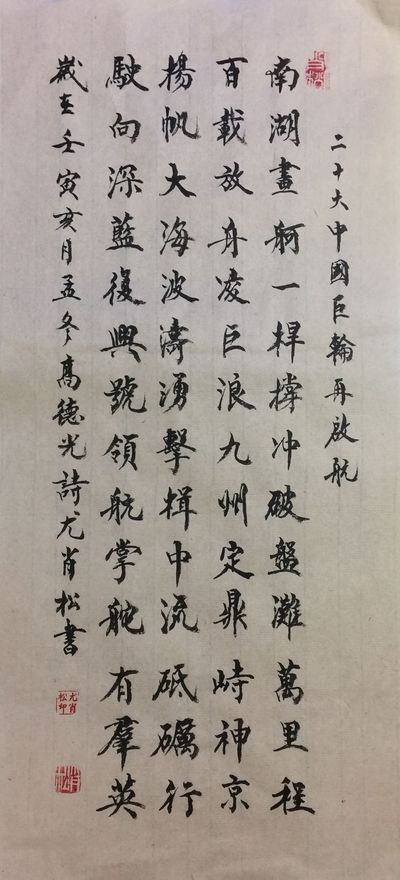 二十大中國巨輪再啟航
南湖畫舸一桿撐冲破盤灘萬里程
百載放舟凌巨浪九州定鼎峙神京
楊帆大海波濤湧擊楫中流砥礪行
駛向深藍復興號領航掌舵有羣英
歲在壬寅亥月孟冬高德光詩尤肖松書
尤肖松印